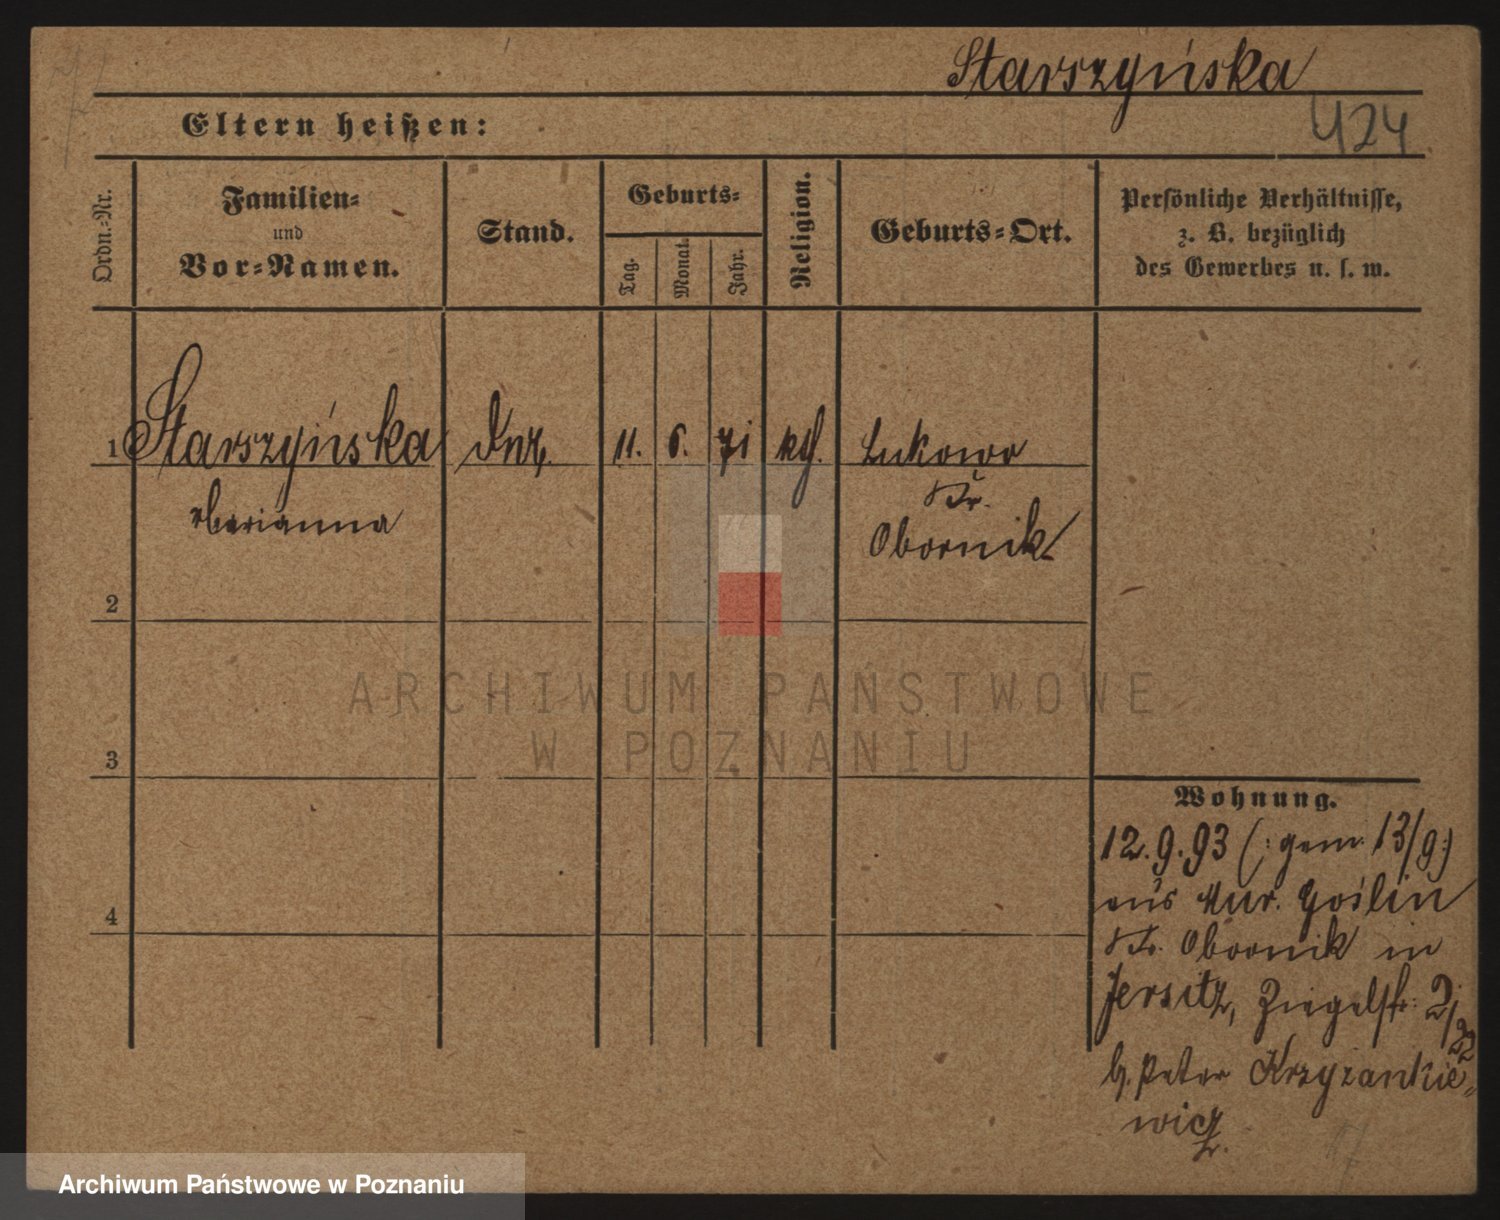 Starszyńska
424
Eltern heißen:
Ordn.-Nr.
Familien-
und
Vor-Namen.
Stand.
Geburts-
Tag.
Monat.
Jahr.
Religion.
Geburts-Ort.
Persönliche Verhältnisse,
z. B. bezüglich
des Gewerbes u. s. w.
1 Starszyńska 11. 6. 71 kth. Lukowo
Marianna
Kr.
Obornik
2
3
4
ARCHIWUM PAŃSTWOWE
W POZNANIU
Wohnung.
12.9.93 (: gem. 13/9 :)
aus Mur. Goślin
Kr. Obornik in
Jersitz, Ziegelstr: 2/22
b. Peter Krzyzankie„
wicz.
Archiwum Państwowe w Poznaniu